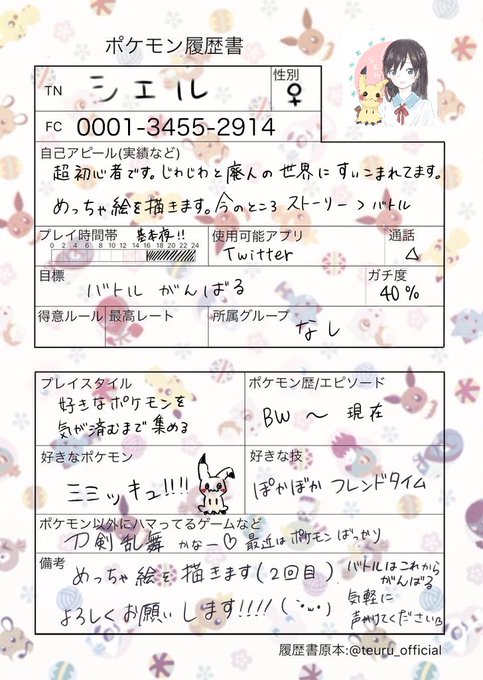 ポケモン履歴書
TN シエル
性別 ♀
FC 0001-3455-2914
自己アピール(実績など)
超初心者です。じわじわと廃人の世界にすいこまれてます。
めっちゃ絵を描きます。今のところ ストーリー > バトル
プレイ時間帯 基本夜!!
0 2 4 6 8 10 12 14 16 18 20 22 24
使用可能アプリ
Twitter
通話
△
目標
バトル がんばる
ガチ度
40%
得意ルール 最高レート 所属グループ
なし
プレイスタイル
好きなポケモンを
気が済むまで集める
ポケモン歴/エピソード
BW 〜 現在
好きなポケモン
ミミッキュ!!!!
好きな技
ぽかぼか フレンドタイム
ポケモン以外にハマってるゲームなど
刀剣乱舞 かなー♡ 最近はポケモンばっかり
備考
めっちゃ絵を描きます(2回目)
よろしくお願いします!!!! (˙ω˙)
バトルはこれから
がんばる
気軽に
声かけてください
履歴書原本:@teuru_official